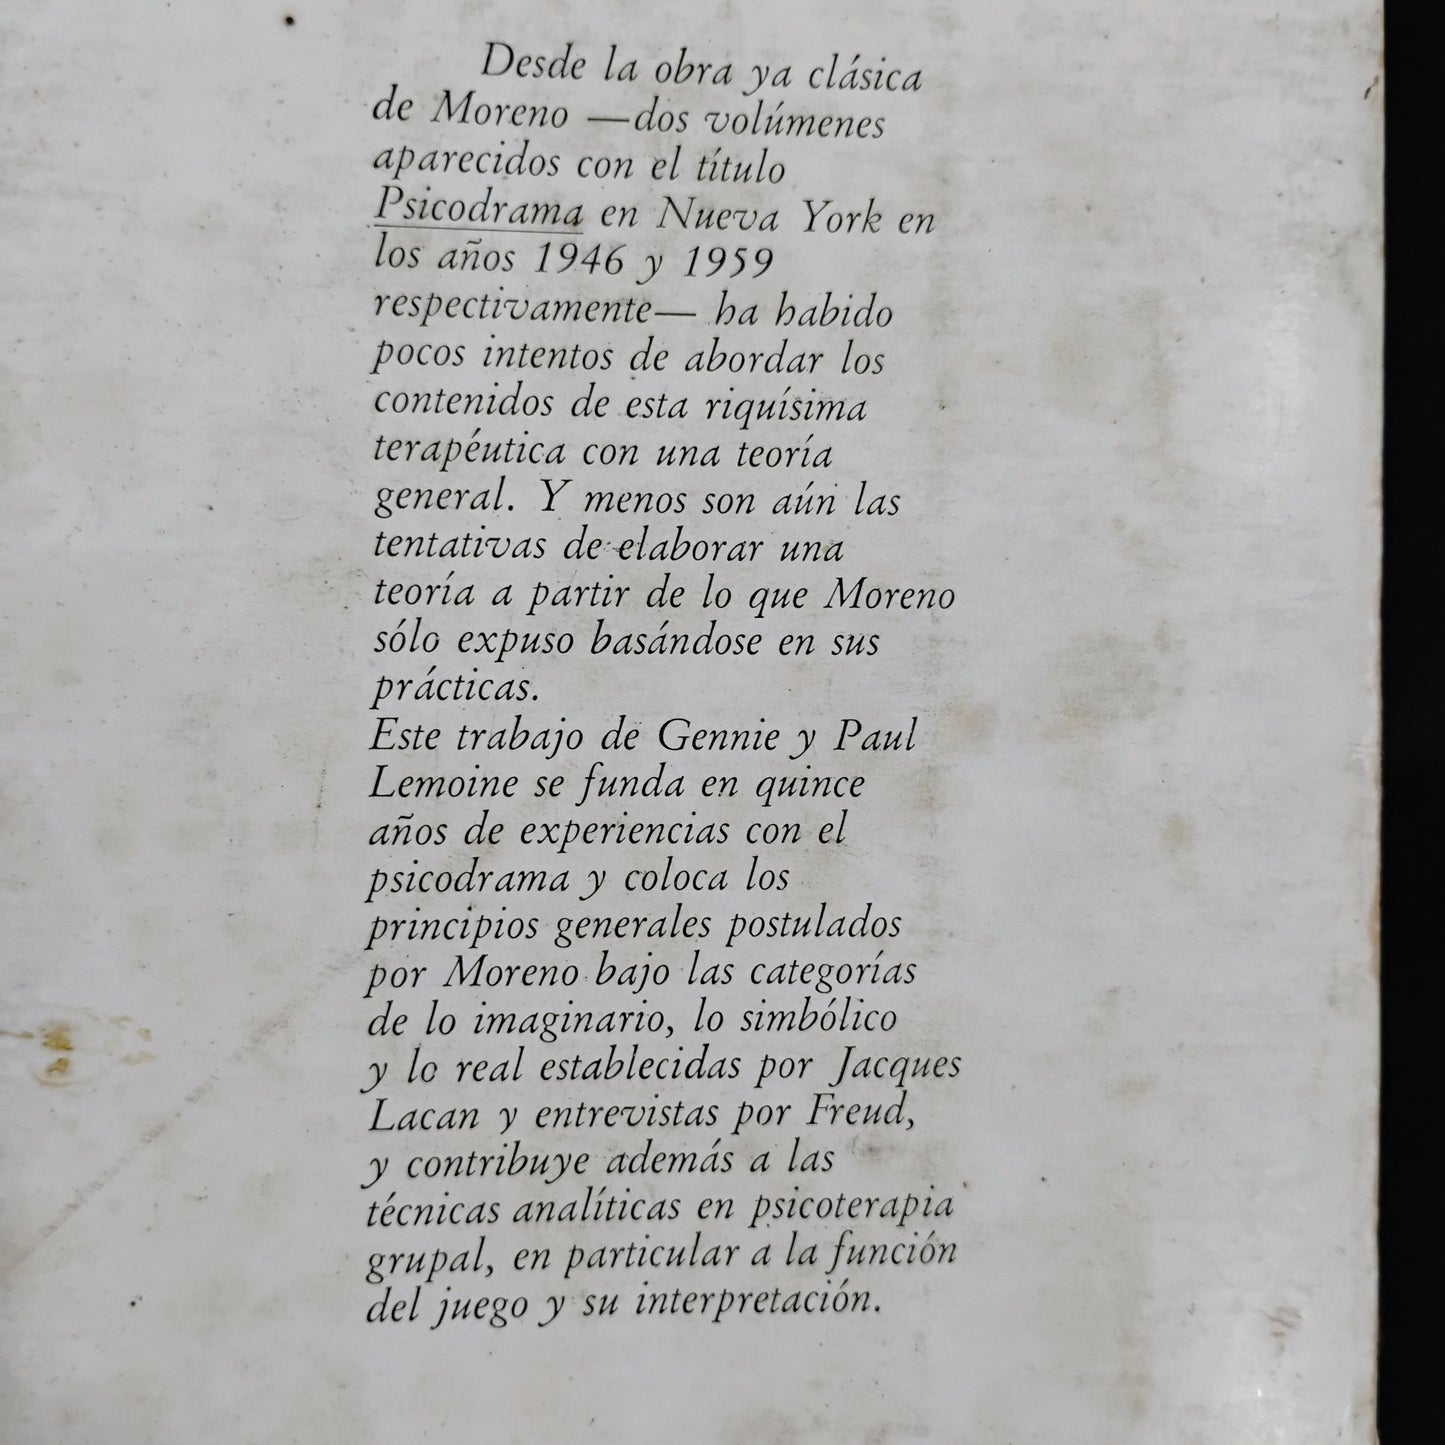 Desde la obra ya clásica
de Moreno —dos volúmenes
aparecidos con el título
Psicodrama en Nueva York en
los años 1946 y 1959
respectivamente— ha habido
pocos intentos de abordar los
contenidos de esta riquísima
terapéutica con una teoría
general. Y menos son aún las
tentativas de elaborar una
teoría a partir de lo que Moreno
sólo expuso basándose en sus
prácticas.
Este trabajo de Gennie y Paul
Lemoine se funda en quince
años de experiencias con el
psicodrama y coloca los
principios generales postulados
por Moreno bajo las categorías
de lo imaginario, lo simbólico
y lo real establecidas por Jacques
Lacan y entrevistas por Freud,
y contribuye además a las
técnicas analíticas en psicoterapia
grupal, en particular a la función
del juego y su interpretación.